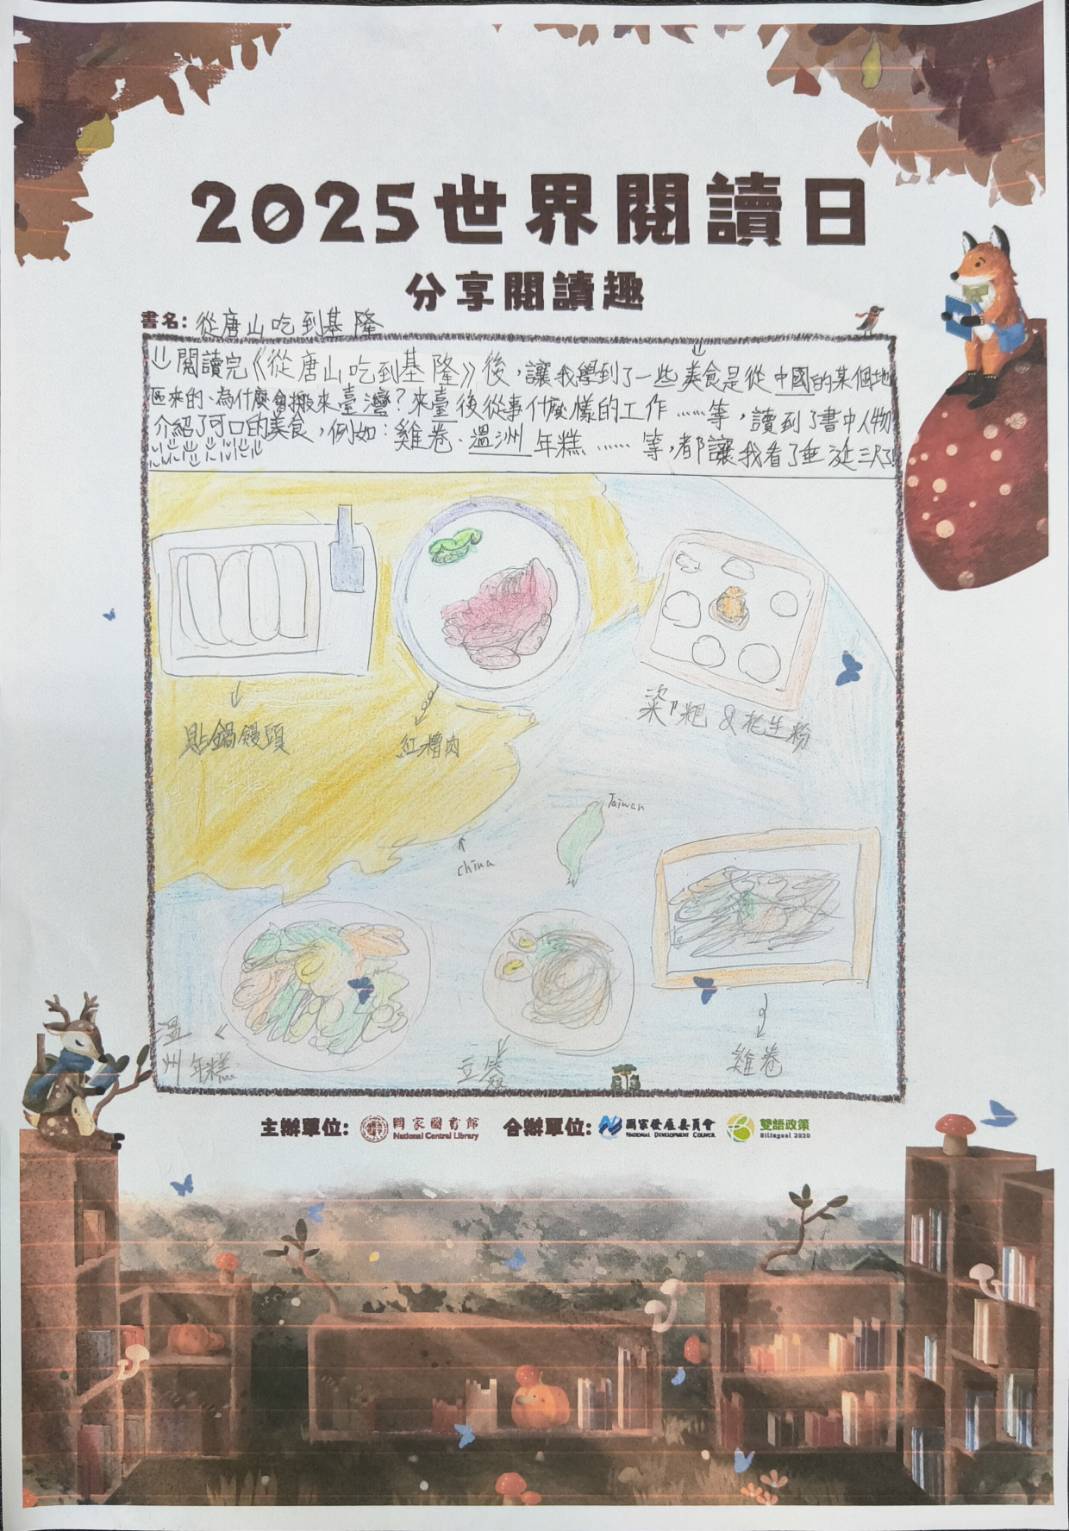 2025世界閱讀日
分享閱讀趣
書名: 從唐山吃到基隆
閱讀完《從唐山吃到基隆》後,讓我學到了一些美食是從中國的某個地
區來的、為什麼會搬來臺灣?來臺後從事什麼樣的工作……等,讀到了書中人物
介紹了可口的美食,例如:雞卷、溫洲年糕……等,都讓我看了垂涎三尺
貼鍋饅頭
紅糟肉
粿 & 花生粉
Taiwan
china
溫
州年糕
豆簽
雞卷
主辦單位: 國家圖書館 National Central Library 合辦單位: 國家發展委員會 National Development Council 雙語政策 Bilingual 2030